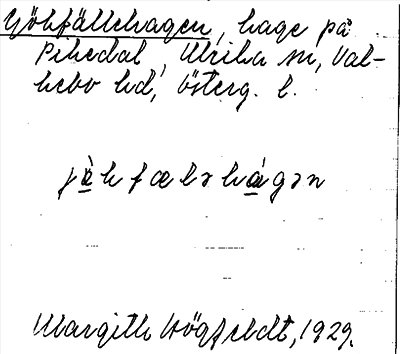 Gökfällehagen, hage på
Pikedal, Ulrika sn, Val-
kebo hd, Österg. l.
jö̀kfælǝhágǝn
Margith Högfeldt, 1929.